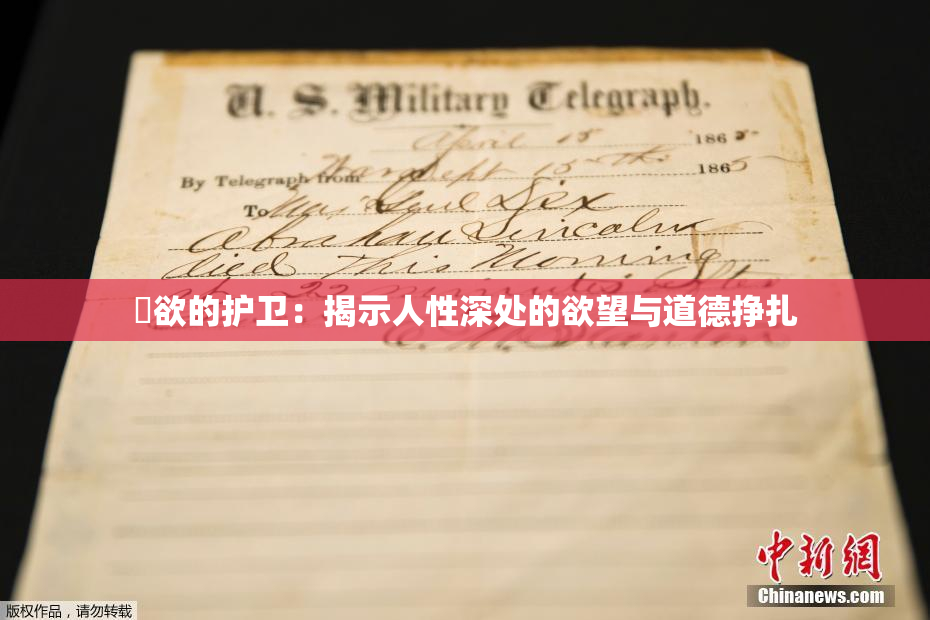 U. S. Military Telegraph.
April 15 1865
By Telegraph from War Dept 15th 1865
To Maj Genl Dix
Abraham Lincoln
died This Morning
at 22 minutes after
欲的护卫：揭示人性深处的欲望与道德挣扎
中新网
Chinanews.com
版权作品，请勿转载